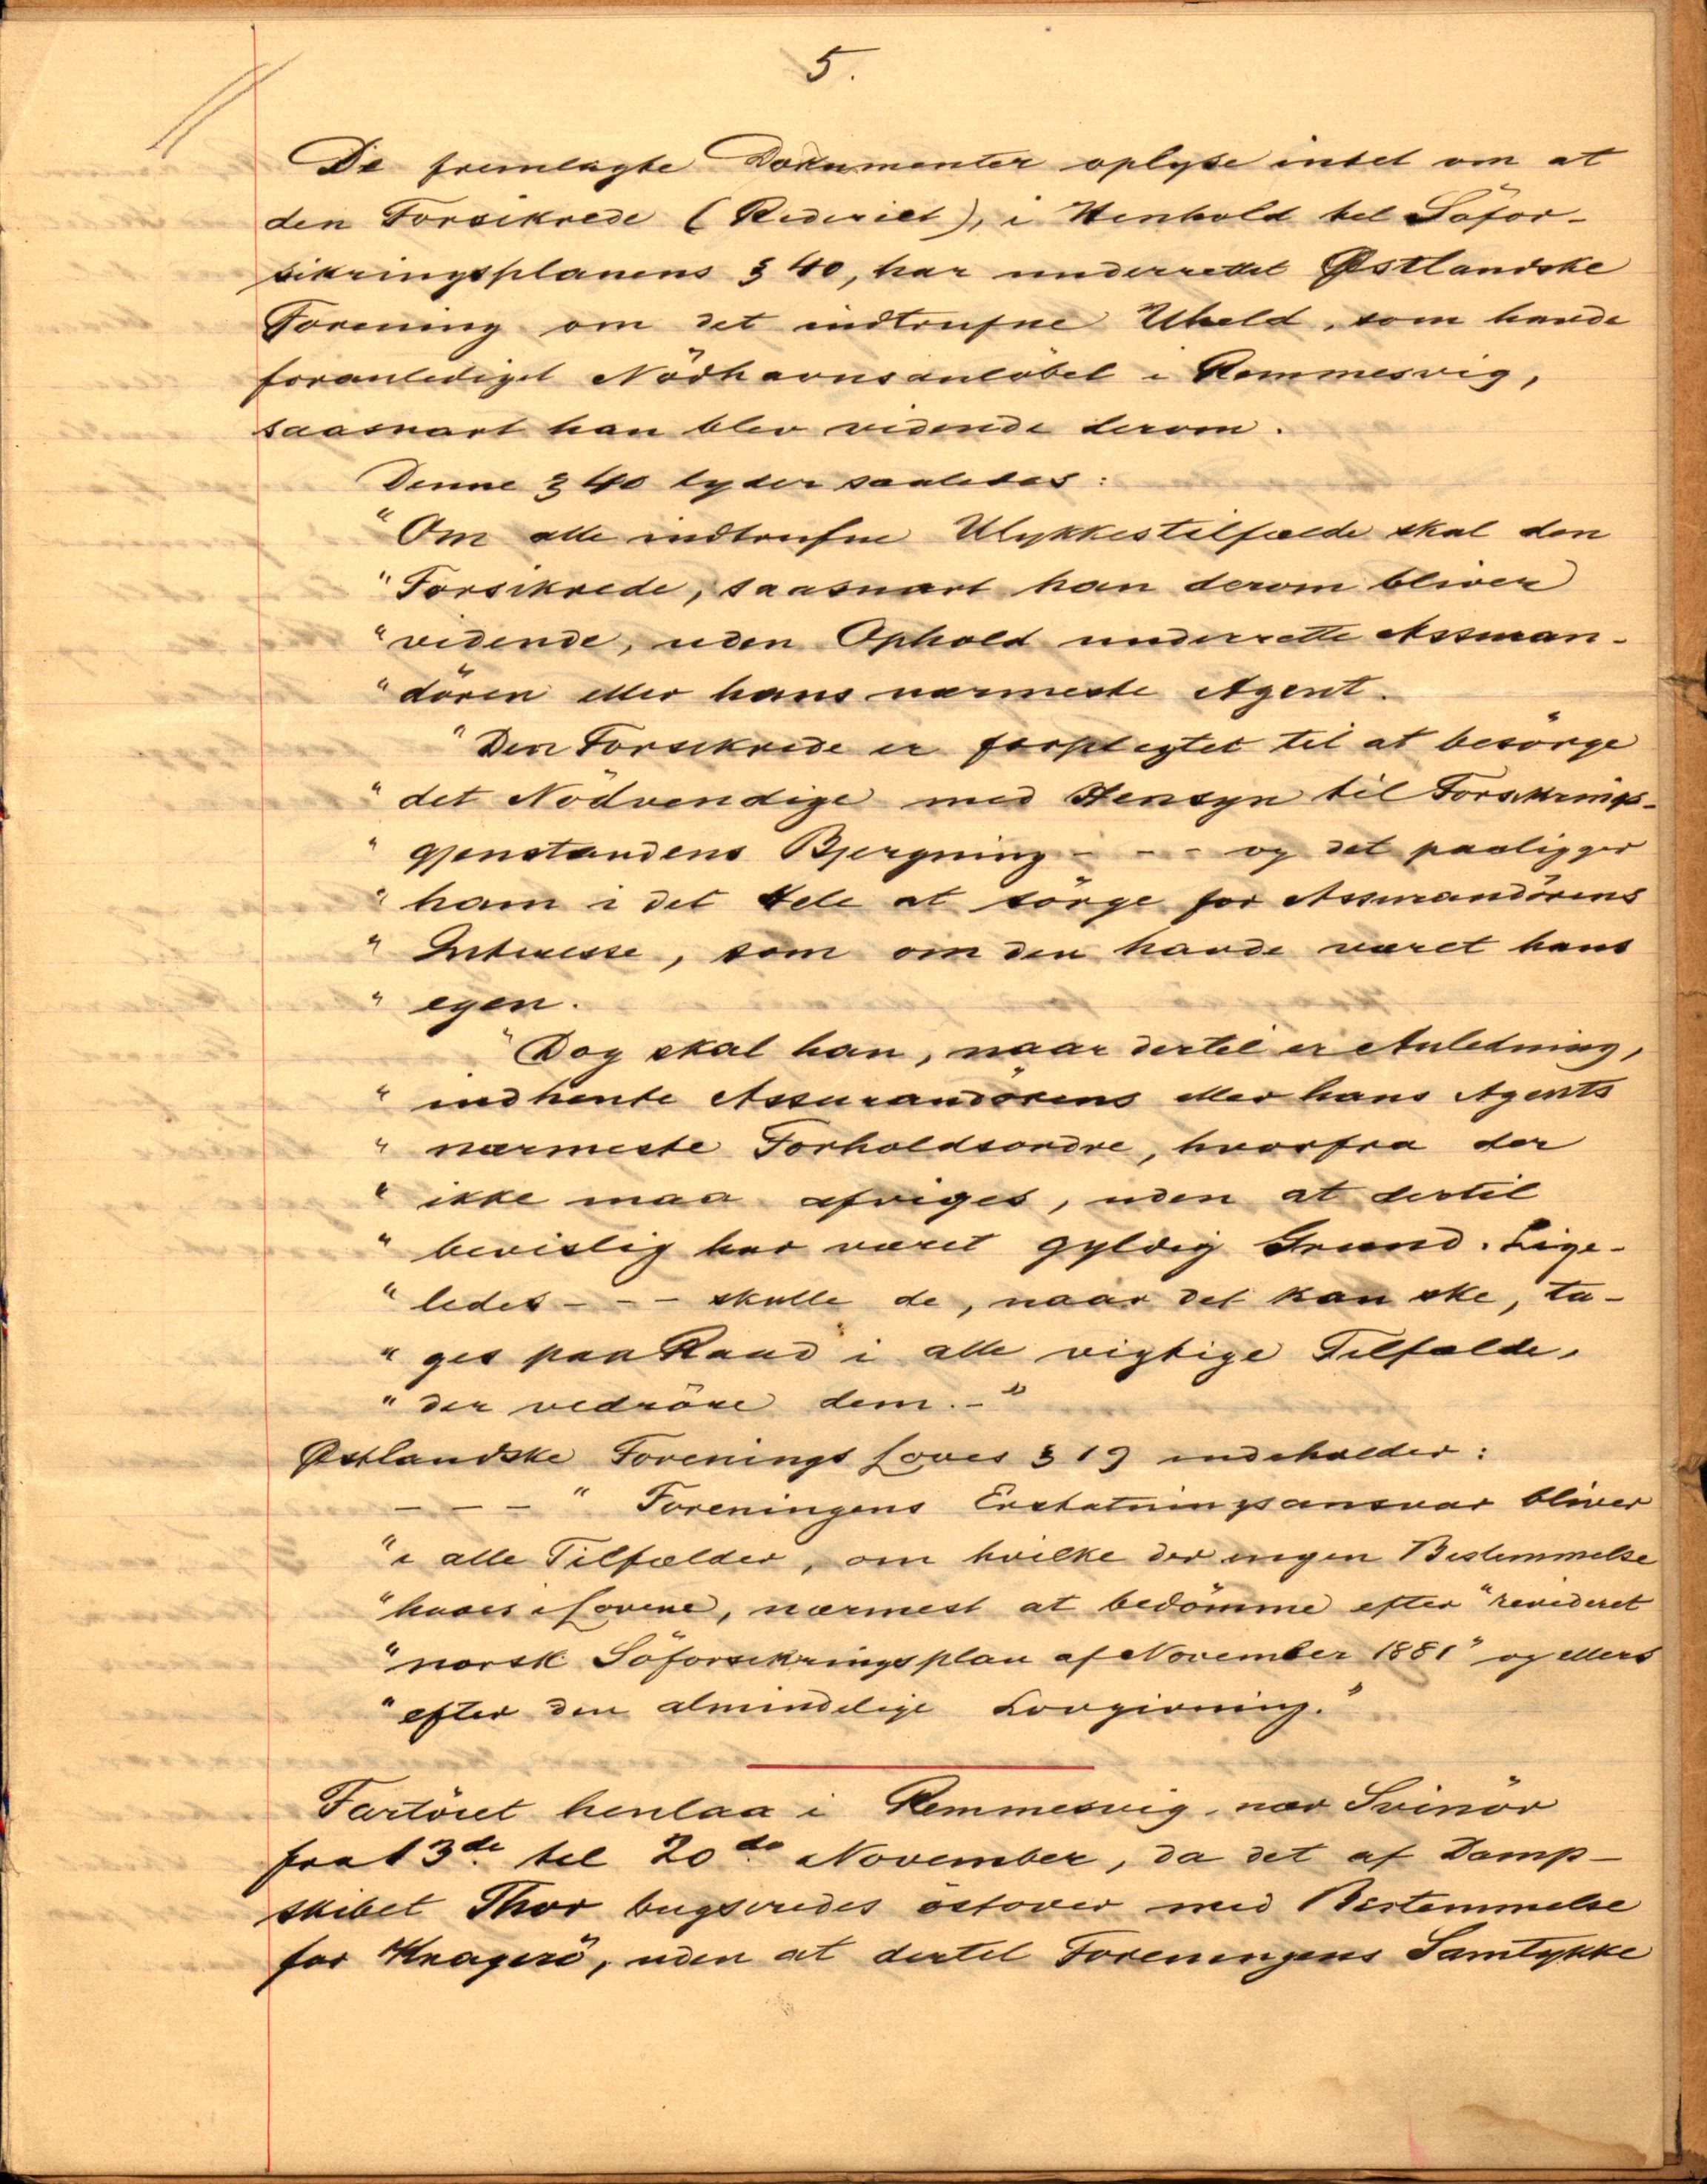 5.
De fremlagte Dokumenter oplyse intet om at
den Forsikrede (Rederiet), i Henhold til Söfor-
sikringsplanens § 40, har underrettet Østlandske
Forening om det indtrufne Uheld, som havde
foranlediget Nödhavnsanlöbet i Remmesvig,
saasnart han blev vidende derom.
Denne § 40 lyder saaledes:
"Om alle indtrufne Ulykkestilfælde skal den
"Forsikrede, saasnart han derom bliver
"vidende, uden Ophold underrette Assuran-
"dören eller hans nærmeste Agent.
"Den Forsikrede er forpligtet til at besörge
"det Nödvendige med Hensyn til Forsikrings-
"gjenstandens Bjergning - - - og det paaligger
"ham i det Hele at sörge for Assurandörens
"Interesse, som om den havde været hans
"egen.
"Dog skal han, naar dertil er Anledning,
"indhente Assurandörens eller hans Agents
"nærmeste Forholdsordre, hvorfra der
"ikke maa afviges, uden at dertil
"bevislig har været gyldig Grund. Lige-
"ledes - - - skulle de, naar det kan ske, ta-
"ges paa Raad i alle vigtige Tilfælde,
"der vedröre dem.-"
Østlandske Forenings Loves § 19 indeholder:
- - - " Foreningens Erstatningsansvar bliver
"i alle Tilfælder, om hvilke der ingen Bestemmelse
"haves i Lovene, nærmest at bedömme efter "revideret
"norsk Söforsikringsplan af November 1881" og ellers
"efter den almindelige Lovgivning."
Fartöiet henlaa i Remmesvig, nær Svinör
fra 13de til 20de November, da det af Damp-
skibet Thor bugseredes östover med Bestemmelse
for Kragerö, uden at dertil Foreningens Samtykke